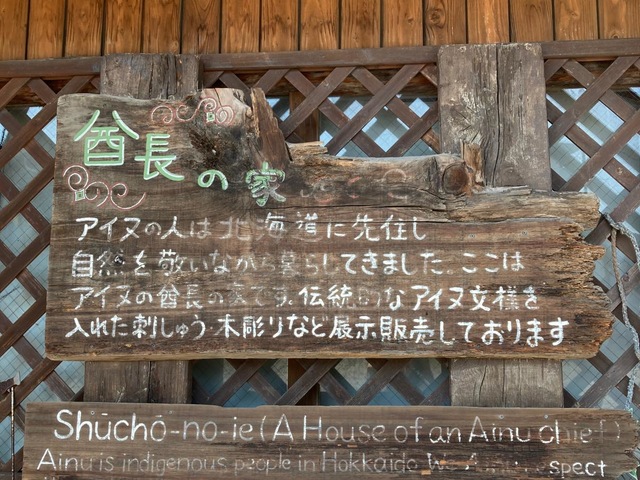 酋長の家
アイヌの人は北海道に先住し
自然を敬いながら暮らしてきました。ここは
アイヌの酋長の家です。伝統的なアイヌ文様を
入れた刺しゅう・木彫りなど展示販売しております
Shūchō-no-ie (A House of an Ainu chief)
Ainu is indigenous people in Hokkaido. We Ainu respect